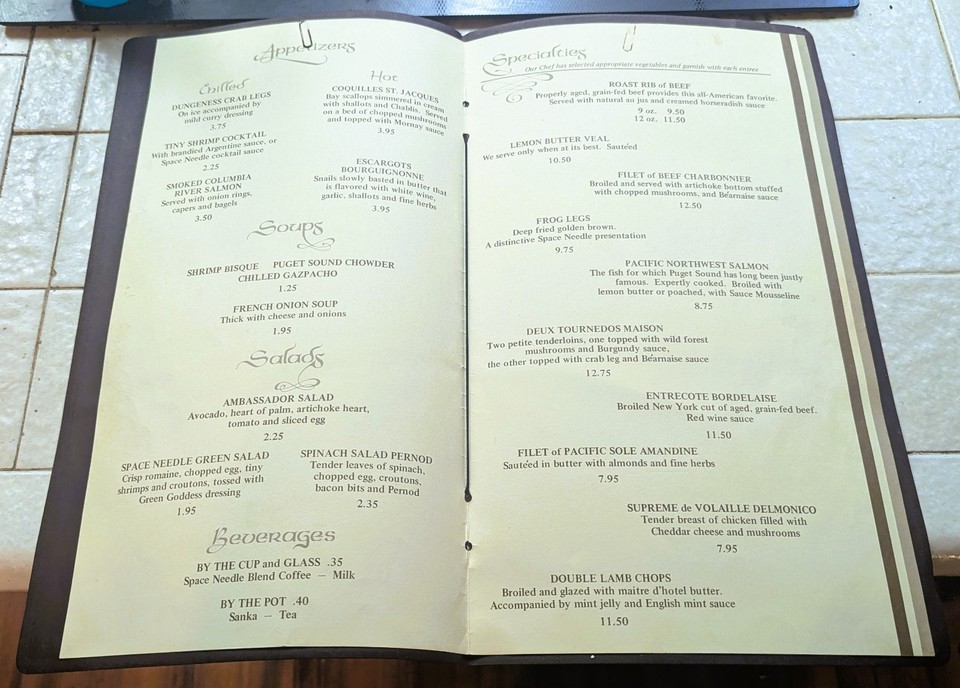 Appetizers
Chilled
DUNGENESS CRAB LEGS
On ice accompanied by
mild curry dressing
3.75
TINY SHRIMP COCKTAIL
With brandied Argentine sauce, or
Space Needle cocktail sauce
2.25
SMOKED COLUMBIA
RIVER SALMON
Served with onion rings,
capers and bagels
3.50
Hot
COQUILLES ST. JACQUES
Bay scallops simmered in cream
with shallots and Chablis. Served
on a bed of chopped mushrooms
and topped with Mornay sauce
3.95
ESCARGOTS
BOURGUIGNONNE
Snails slowly basted in butter that
is flavored with white wine,
garlic, shallots and fine herbs
3.95
Soups
SHRIMP BISQUE PUGET SOUND CHOWDER
CHILLED GAZPACHO
1.25
FRENCH ONION SOUP
Thick with cheese and onions
1.95
Salads
AMBASSADOR SALAD
Avocado, heart of palm, artichoke heart,
tomato and sliced egg
2.25
SPACE NEEDLE GREEN SALAD
Crisp romaine, chopped egg, tiny
shrimps and croutons, tossed with
Green Goddess dressing
1.95
SPINACH SALAD PERNOD
Tender leaves of spinach,
chopped egg, croutons,
bacon bits and Pernod
2.35
Beverages
BY THE CUP and GLASS .35
Space Needle Blend Coffee — Milk
BY THE POT .40
Sanka — Tea
Specialties
Our Chef has selected appropriate vegetables and garnish with each entree
ROAST RIB of BEEF
Properly aged, grain-fed beef provides this all-American favorite.
Served with natural au jus and creamed horseradish sauce
9 oz. 9.50
12 oz. 11.50
LEMON BUTTER VEAL
We serve only when at its best. Sautéed
10.50
FILET of BEEF CHARBONNIER
Broiled and served with artichoke bottom stuffed
with chopped mushrooms, and Béarnaise sauce
12.50
FROG LEGS
Deep fried golden brown.
A distinctive Space Needle presentation
9.75
PACIFIC NORTHWEST SALMON
The fish for which Puget Sound has long been justly
famous. Expertly cooked. Broiled with
lemon butter or poached, with Sauce Mousseline
8.75
DEUX TOURNEDOS MAISON
Two petite tenderloins, one topped with wild forest
mushrooms and Burgundy sauce,
the other topped with crab leg and Béarnaise sauce
12.75
ENTRECOTE BORDELAISE
Broiled New York cut of aged, grain-fed beef.
Red wine sauce
11.50
FILET of PACIFIC SOLE AMANDINE
Sautéed in butter with almonds and fine herbs
7.95
SUPREME de VOLAILLE DELMONICO
Tender breast of chicken filled with
Cheddar cheese and mushrooms
7.95
DOUBLE LAMB CHOPS
Broiled and glazed with maitre d'hotel butter.
Accompanied by mint jelly and English mint sauce
11.50